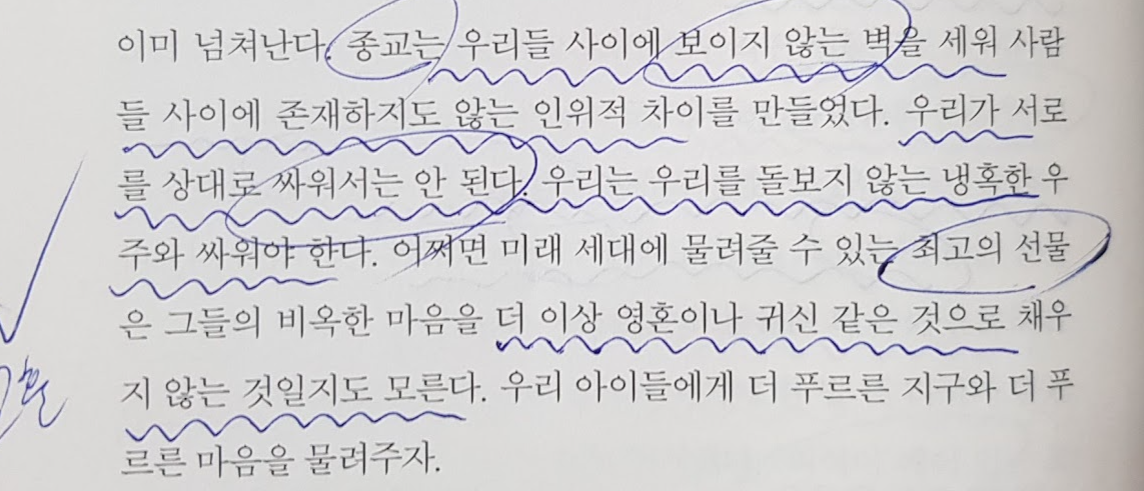 이미 넘쳐난다. 종교는 우리들 사이에 보이지 않는 벽을 세워 사람
들 사이에 존재하지도 않는 인위적 차이를 만들었다. 우리가 서로
를 상대로 싸워서는 안 된다. 우리는 우리를 돌보지 않는 냉혹한 우
주와 싸워야 한다. 어쩌면 미래 세대에 물려줄 수 있는 최고의 선물
은 그들의 비옥한 마음을 더 이상 영혼이나 귀신 같은 것으로 채우
지 않는 것일지도 모른다. 우리 아이들에게 더 푸르른 지구와 더 푸
르른 마음을 물려주자.